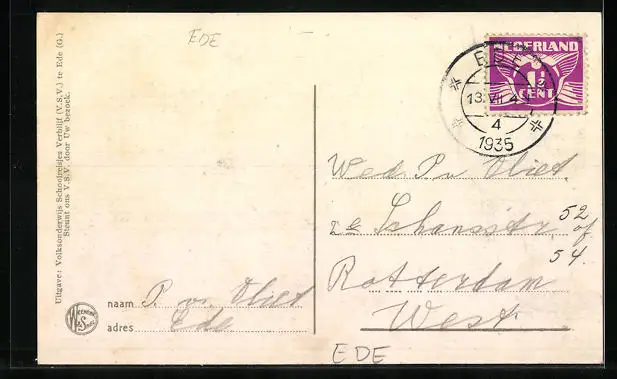 EDE
Uitgave: Volksonderwijs Schoolreisjes Verblijf (V.S.V.) te Ede (G.)
Steunt ons V.S.V. door Uw bezoek.
NEDERLAND
1½
CENT
EDE
13 VII 4
4
1935
Wed. P. v. Vliet
2e Schansstr. 52
of
54.
Rotterdam
West.
naam P. v. Vliet
adres Ede
EDE